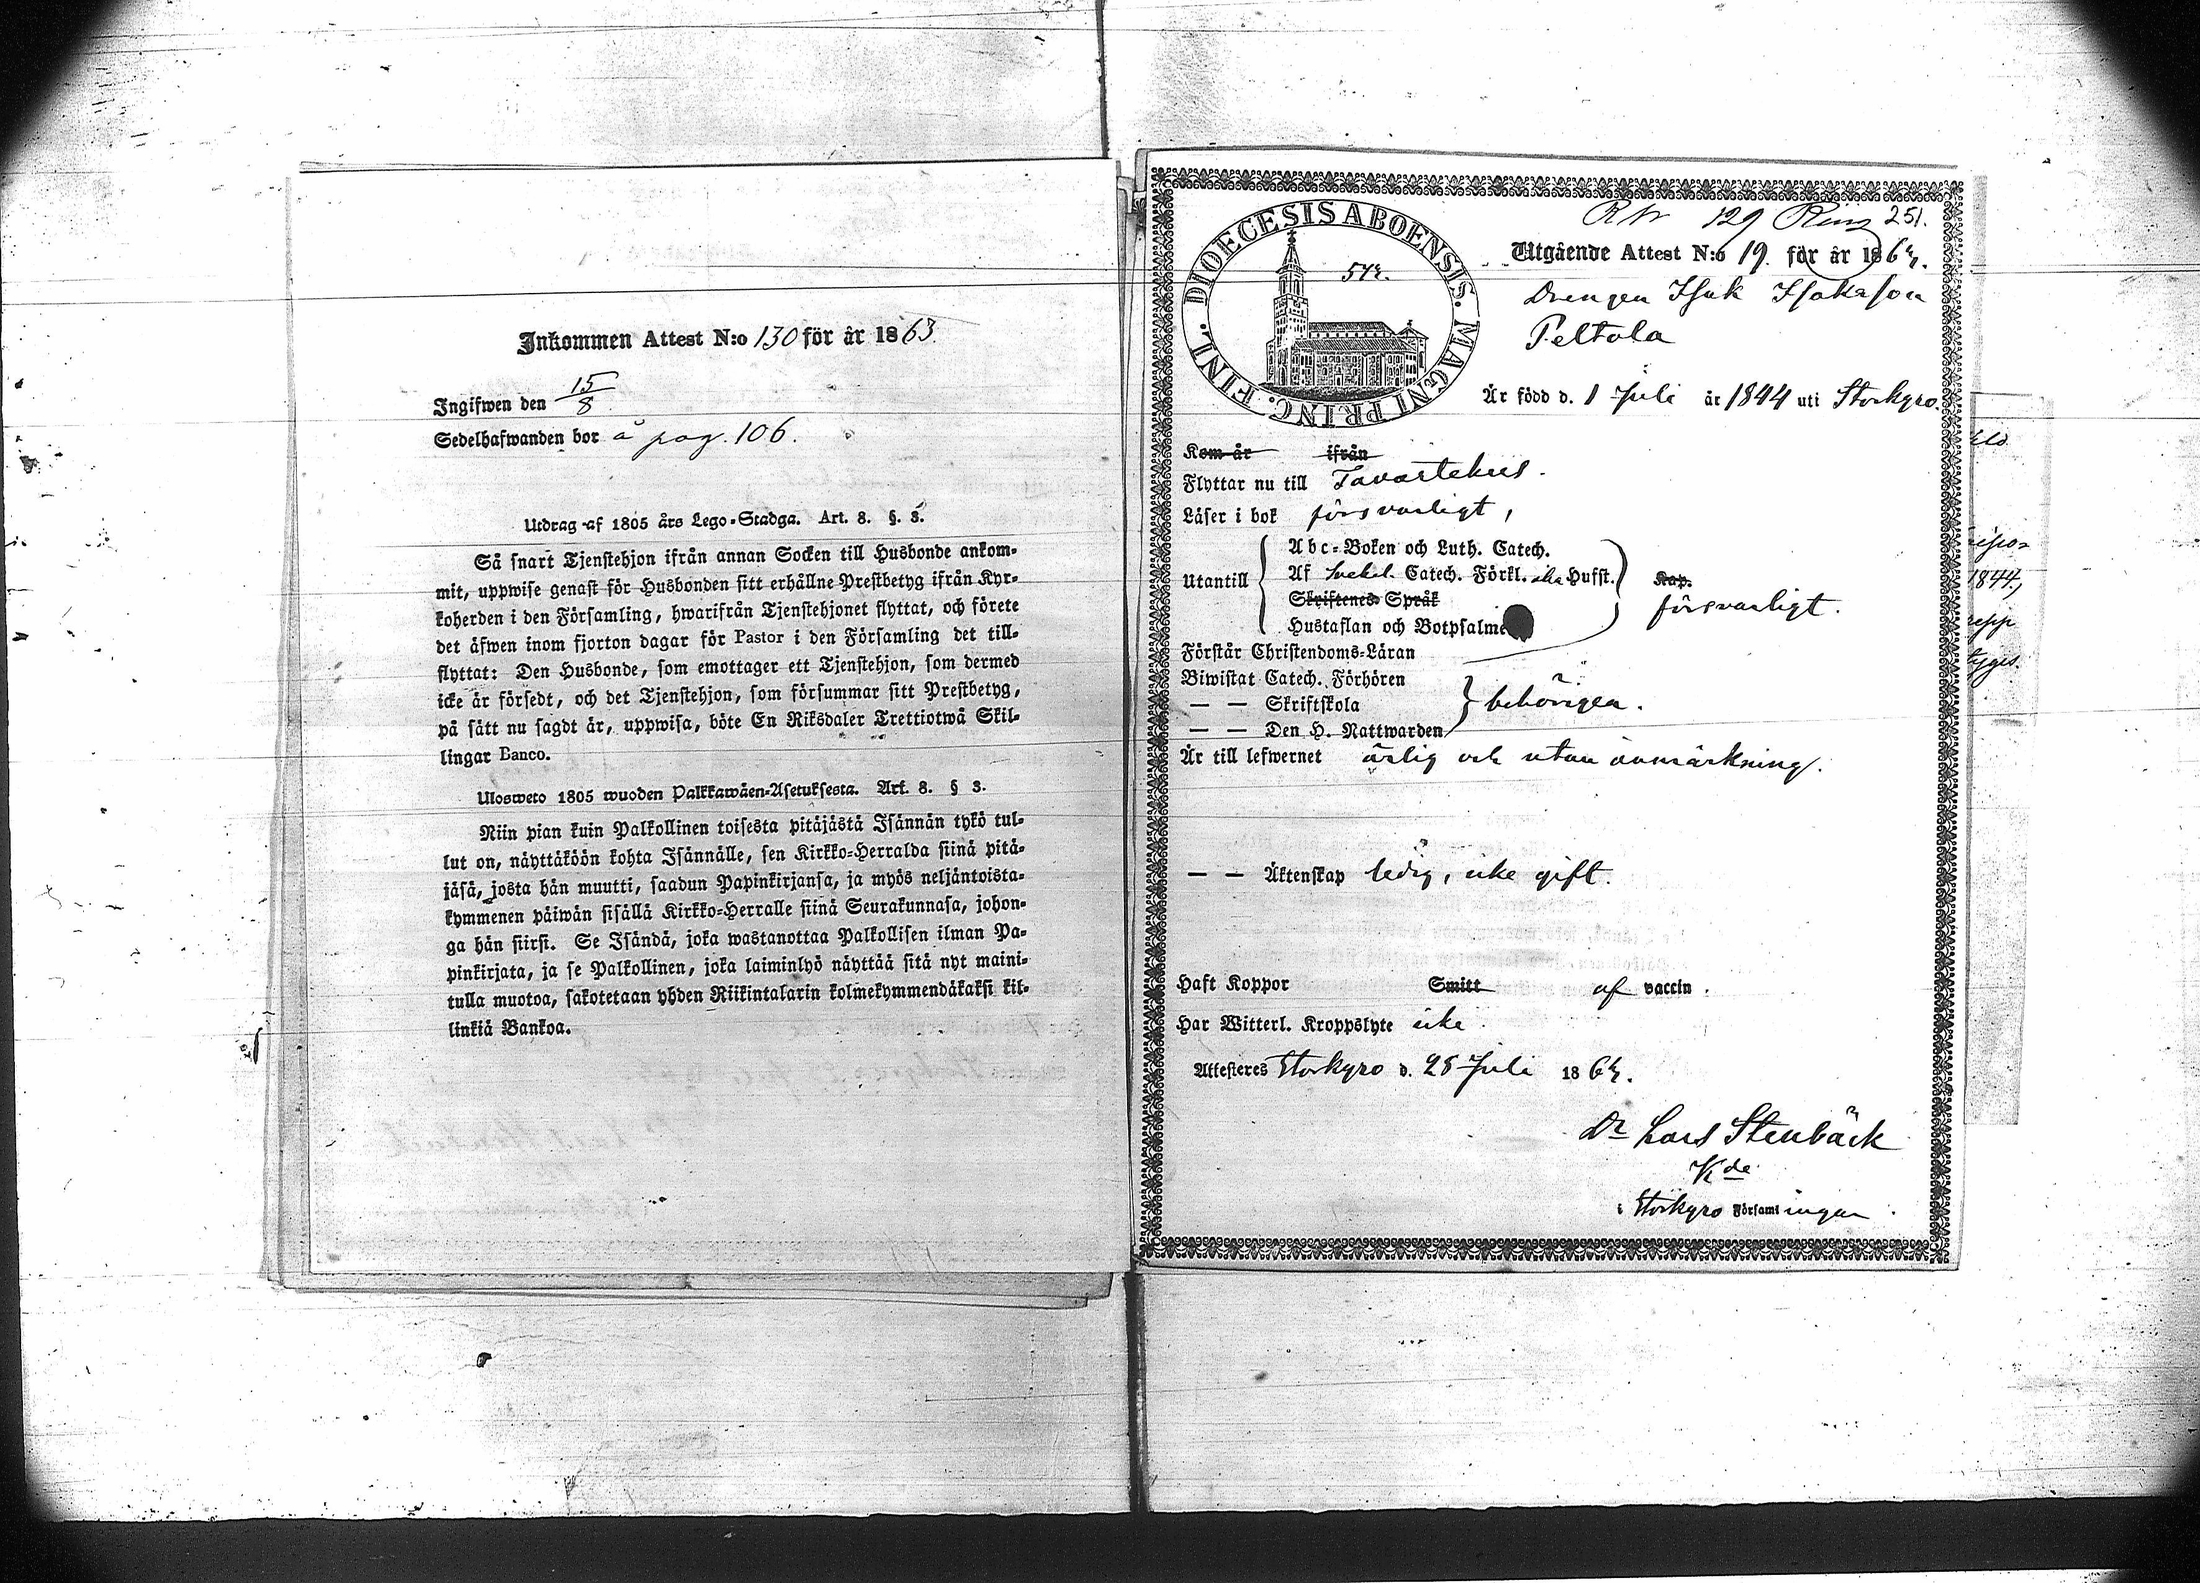 Inkommen Attest N:o 130 för år 1863.
Ingifwen den 15/8
Sedelhafwanden bor å pag. 106.
Utdrag af 1805 års Lego-Stadga. Art. 8. §. 3.
Så snart Tjenstehjon ifrån annan Socken till Husbonde ankom-
mit, uppwise genast för Husbonden sitt erhållne Prestbetyg ifrån Kyr-
koherden i den Församling, hwarifrån Tjenstehjonet flyttat, och förete
det äfwen inom fjorton dagar för Pastor i den Församling det till-
flyttat: Den Husbonde, som emottager ett Tjenstehjon, som dermed
icke är försedt, och det Tjenstehjon, som försummar sitt Prestbetyg,
på sätt nu sagdt är, uppwisa, böte En Riksdaler Trettiotwå Skil-
lingar Banco.
Ulosweto 1805 wuoden Palkkawäen-Asetuksesta. Art. 8. § 3.
Niin pian kuin Palkollinen toisesta pitäjästä Isännän tykö tul-
lut on, näyttäköön kohta Isännälle, sen Kirkko-Herralda siinä pitä-
jäsä, josta hän muutti, saadun Papinkirjansa, ja myös neljäntoista-
kymmenen päiwän sisällä Kirkko-Herralle siinä Seurakunnasa, johon-
ga hän siirsi. Se Isändä, joka wastanottaa Palkollisen ilman Pa-
pinkirjata, ja se Palkollinen, joka laiminlyö näyttää sitä nyt maini-
tulla muotoa, sakotetaan yhden Riikintalarin kolmekymmendäkaksi kil-
linkiä Bankoa.
129 251.
DIOECESIS ABOENSIS. MAGNI PRINC. FINL.
Utgående Attest N:o 19. för år 186
Drengen Isak Isaksson
Peltola
Är född d. 1 Juli år 1844 uti Storkyro.
Kom år ifrån
Flyttar nu till Tavastehus.
Läser i bok försvarligt,
Abc-Boken och Luth. Catech.
Utantill Af Svebel. Catech. Förkl. Hufst. Kap.
Skriftenes Språk försvarligt.
Hustaflan och Botpsalme
Förstår Christendoms-Läran
Biwistat Catech. Förhören
— — Skriftskola behörigen.
— — Den H. Nattwarden
Är till lefwernet ärlig och utan anmärkning.
— — Äktenskap ledig, icke gift.
Haft Koppor Smitt af vaccin.
Har Witterl. Kroppslyte icke
Attesteres Storkyro d. 28 Juli 186
Dr Lars Stenbäck
Kde
i Storkyro Församlingen.
1844,